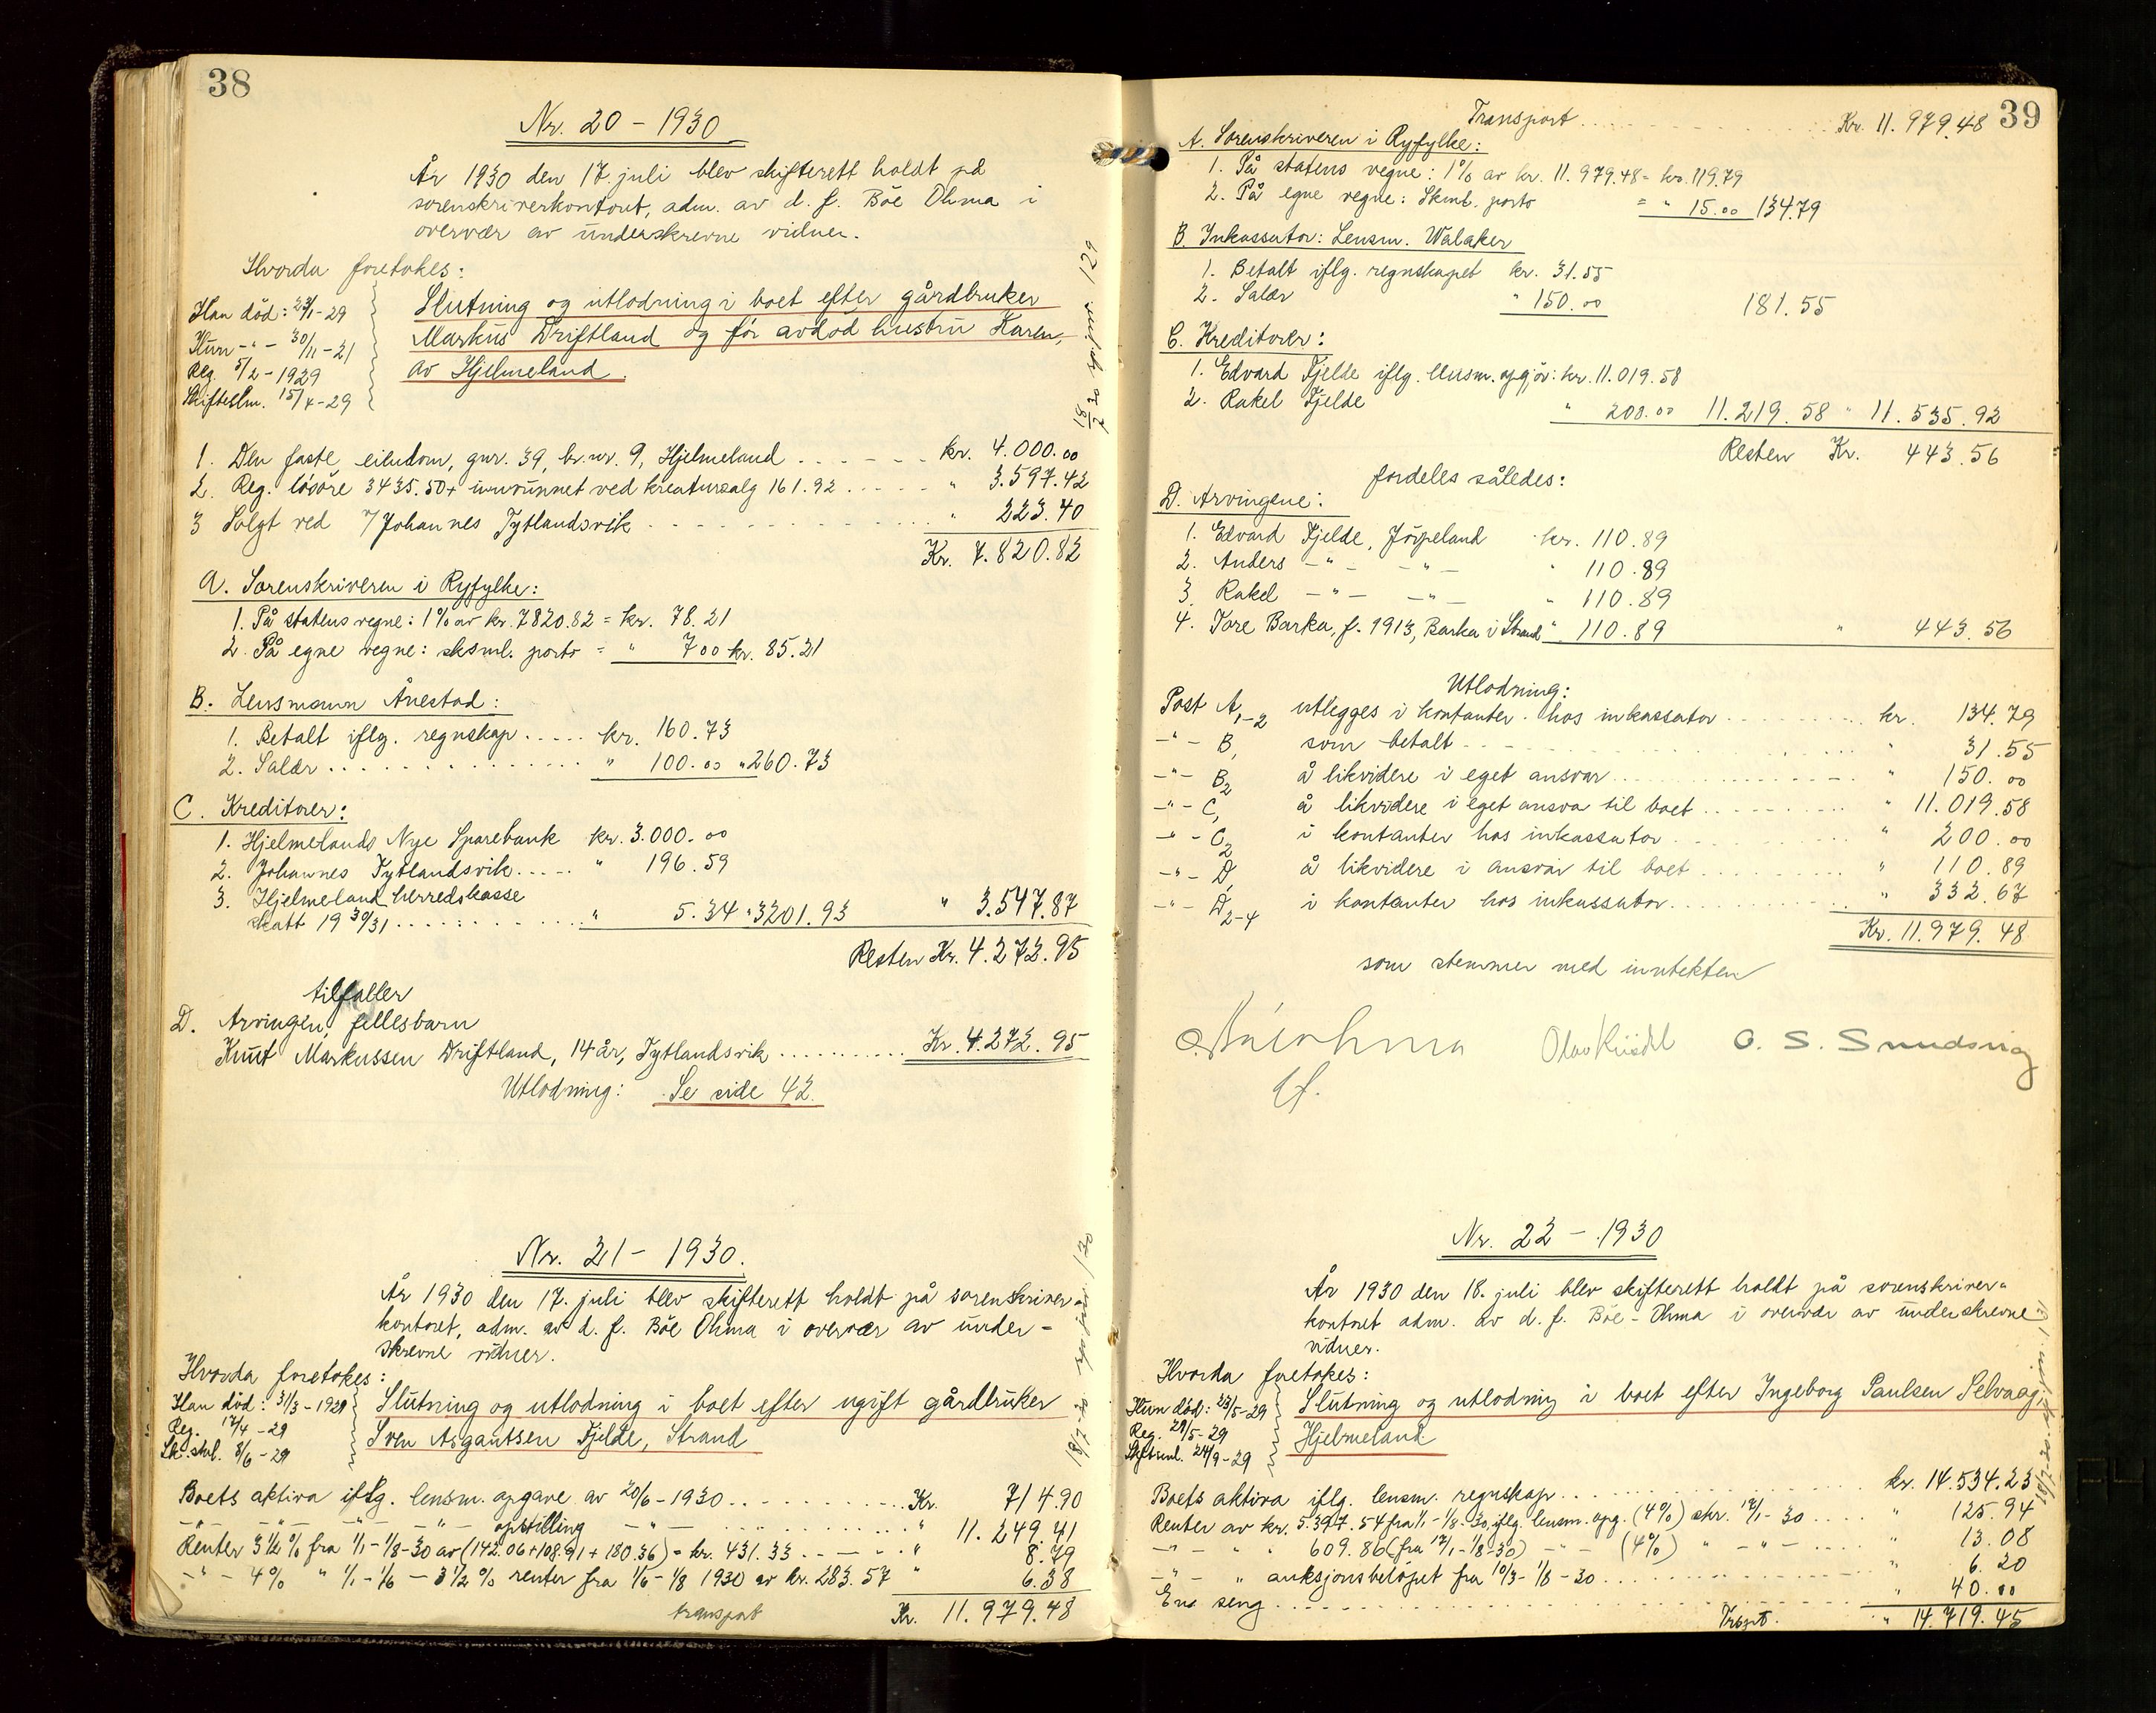 38
Nr. 20 - 1930
År 1930 den 17. juli blev skifterett holdt på
sorenskriverkontoret, adm. av d. f. Böe Ohma i
overvær av underskrevne vidner.
Hvorda foretokes:
Han död: 23/1-29
Hun -"- 30/11-21
Reg. 5/2-1929
Skifteslm. 15/4-29
Slutning og utlodning i boet efter gårdbruker
Markus Driftland og för avdöd hustru Karen,
av Hjelmeland.
1. Den faste eiendom, gnr. 39, br.nr. 9, Hjelmeland ...... kr. 4.000.00
2. Reg. lösöre 3435.50 + innvunnet ved kreatursalg 161.92 ..... " 3.597.42
3 Solgt ved 7/ Johannes Tytlandsvik .............. " 223.40
Kr. 7.820.82
A. Sorenskriveren i Ryfylke:
1. På statens vegne: 1% av kr. 7820.82 = kr. 78.21
2. På egne vegne: sksml. porto = " 7 00 kr. 85.21
B. Lensmann Ånestad:
1. Betalt iflg. regnskap ..... kr. 160.73
2. Salær .............. " 100.00 " 260.73
C. Kreditorer:
1. Hjelmelands Nye Sparebank kr. 3.000.00
2. Johannes Tytlandsvik ..... " 196.59
3. Hjelmeland herredskasse
skatt 19 30/31 ........... " 5.34 " 3201.93 " 3.547.87
Resten Kr. 4.272.95
tilfaller
D. Arvingen, fellesbarn
Knut Markussen Driftland, 14 år, Tytlandsvik .......... Kr. 4.272.95
Utlodning: Se side 42.
Nr. 21 - 1930.
År 1930 den 17. juli blev skifterett holdt på sorenskriver-
kontoret, adm. av d. f. Böe Ohma i overvær av under-
skrevne vidner.
Hvorda foretokes:
Han död: 31/3-1929
Reg. 17/4-29
Sk.sml. 8/6-29
Slutning og utlodning i boet efter ugift gårdbruker
Sven Asgautsen Fjelde, Strand
Boets aktiva iflg. lensm. opgave av 20/6-1930 ........... Kr. 714.90
-"- -"- -"- -"- opstilling -"- ........... " 11.249.41
Renter 3 1/2 % fra 1/1-1/8-30 av (142.06+108.91+180.36) = kr. 431.33 ..... " 8.79
-"- 4% " 1/1-1/6 - 3 1/2 % renter fra 1/6-1/8 1930 av kr. 283.57 " 6.38
transport Kr. 11.979.48
39
Transport ............ Kr. 11.979.48
A. Sorenskriveren i Ryfylke:
1. På statens vegne: 1% av kr. 11.979.48 = kr. 119.79
2. På egne vegne: Sksml. porto = " 15.00 134.79
B. Inkassator: Lensm. Walaker
1. Betalt iflg. regnskapet kr. 31.55
2. Salær " 150.00 181.55
C. Kreditorer:
1. Edvard Fjelde iflg. lensm. opgjör: kr. 11.019.58
2. Rakel Fjelde " 200.00 11.219.58 " 11.535.92
Resten Kr. 443.56
fordeles således:
D. Arvingene:
1. Edvard Fjelde, Jörpeland kr. 110.89
2. Anders -"- -"- " 110.89
3. Rakel -"- -"- " 110.89
4. Tore Barka, f. 1913, Barka i Strand " 110.89 " 443.56
Utlodning:
Post A 1-2 utlegges i kontanter hos inkassator ......... kr. 134.79
-"- B 1 som betalt ............ " 31.55
-"- B2 å likvidere i eget ansvar ............ " 150.00
-"- C 1 å likvidere i eget ansva til boet .......... " 11.019.58
-"- C2 i kontanter hos inkassator ............ " 200.00
-"- D 1 å likvidere i ansvar til boet .......... " 110.89
-"- D 2-4 i kontanter hos inkassator ............ " 332.67
Kr. 11.979.48
som stemmer med inntekten
Böe Ohma
O. S. Sundsvåg
Nr. 22 - 1930
År 1930 den 18. juli blev skifterett holdt på sorenskriver-
kontoret adm. av d. f. Böe-Ohma i overvær av underskrevne
vidner.
Hvorda foretokes:
Hun död: 23/5-29
Reg. 29/5-29
Skiftsml. 24/9-29
Slutning og utlodning i boet efter Ingeborg Paulsen Selvaag,
Hjelmeland
Boets aktiva iflg. lensm. regnskap ............ kr. 14.534.23
Renter av kr. 5.397.54 fra 1/1-1/8-30, iflg. lensm. opg. (4%) skr. 17/1-30 .... " 125.94
-"- " " 609.86 (fra 17/1-1/8-30) -"- (4%) " -"- .... " 13.08
-"- " auksjonsbelöpet fra 10/3-1/8-30 ............ " 6.20
En seng ............ " 40.00
Trspt. " 14.719.45